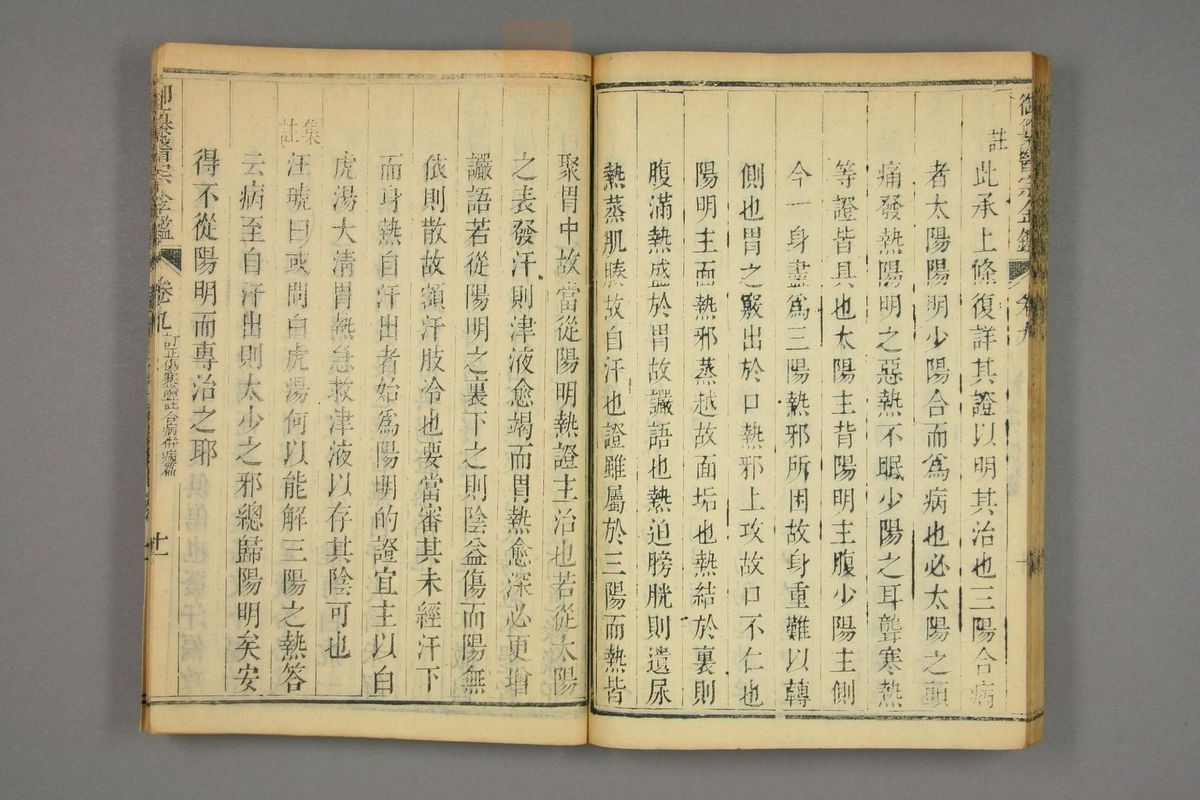 御纂醫宗金鑑 卷九
註
此承上條復詳其證以明其治也三陽合病
者太陽陽明少陽合而為病也必太陽之頭
痛發熱陽明之惡熱不眠少陽之耳聾寒熱
等證皆具也太陽主背陽明主腹少陽主側
今一身盡為三陽熱邪所困故身重難以轉
側也胃之竅出於口熱邪上攻故口不仁也
陽明主面熱邪蒸越故面垢也熱結於裏則
腹滿熱盛於胃故讝語也熱迫膀胱則遺尿
熱蒸肌腠故自汗也證雖屬於三陽而熱皆
聚胃中故當從陽明熱證主治也若從太陽
之表發汗則津液愈竭而胃熱愈深必更增
讝語若從陽明之裏下之則陰益傷而陽無
依則散故額汗肢冷也要當審其未經汗下
而身熱自汗出者始為陽明的證宜主以白
虎湯大清胃熱急救津液以存其陰可也
集註
汪琥曰或問白虎湯何以能解三陽之熱答
云病至自汗出則太少之邪總歸陽明矣安
得不從陽明而專治之耶
御纂醫宗金鑑 卷九 訂正傷寒論註合病併病篇 十一